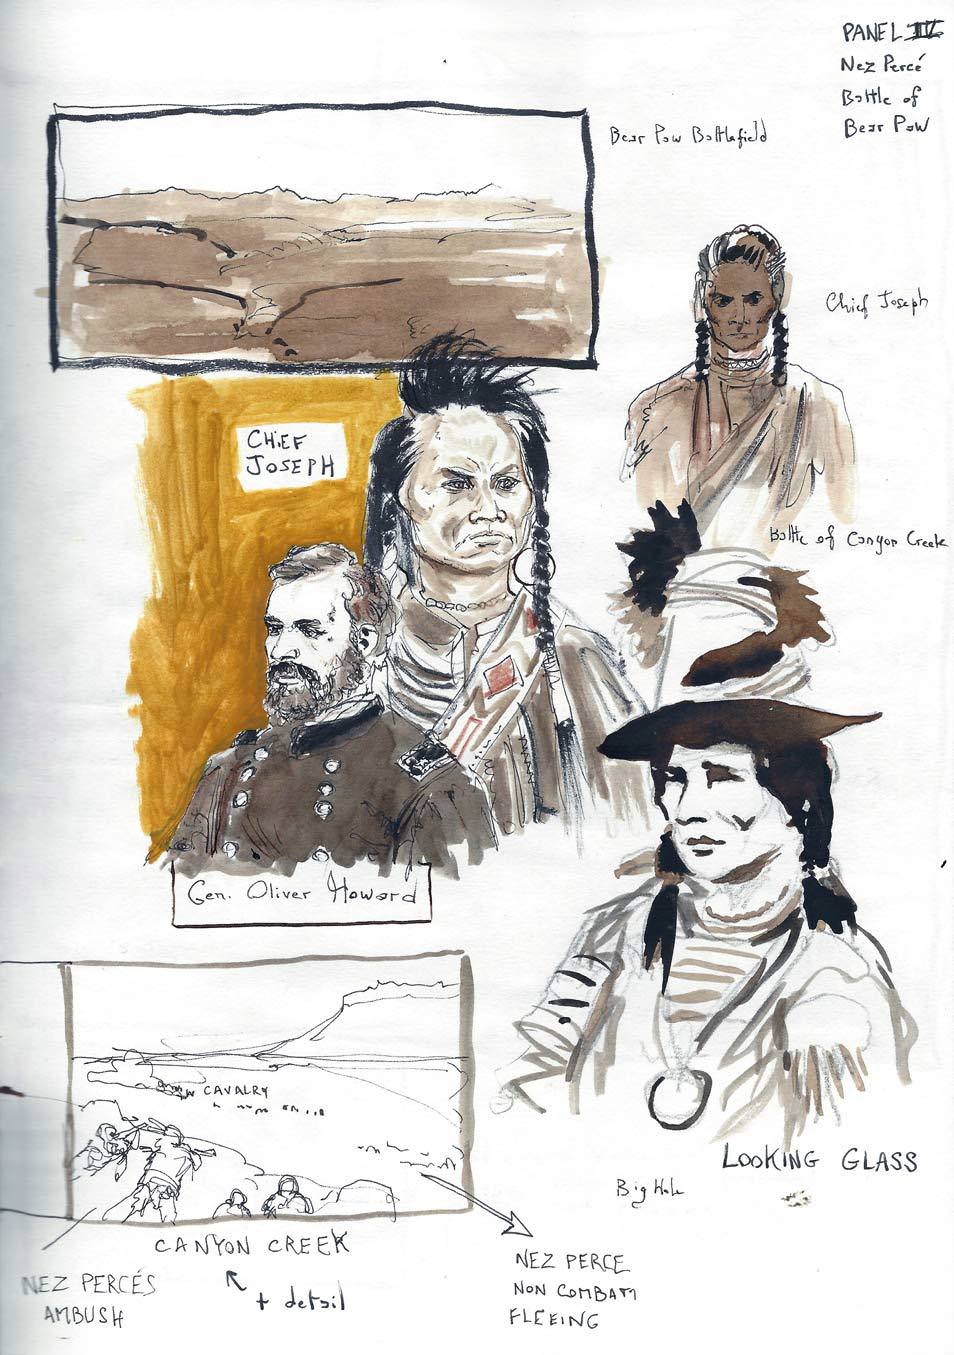 PANEL III
Nez Percé
Battle of
Bear Paw
Bear Paw Battlefield
Chief Joseph
CHIEF
JOSEPH
Battle of Canyon Creek
Gen. Oliver Howard
CAVALRY
LOOKING GLASS
Big Hole
CANYON CREEK
NEZ PERCÉS
AMBUSH
+ detail
NEZ PERCE
NON COMBATT
FLEEING